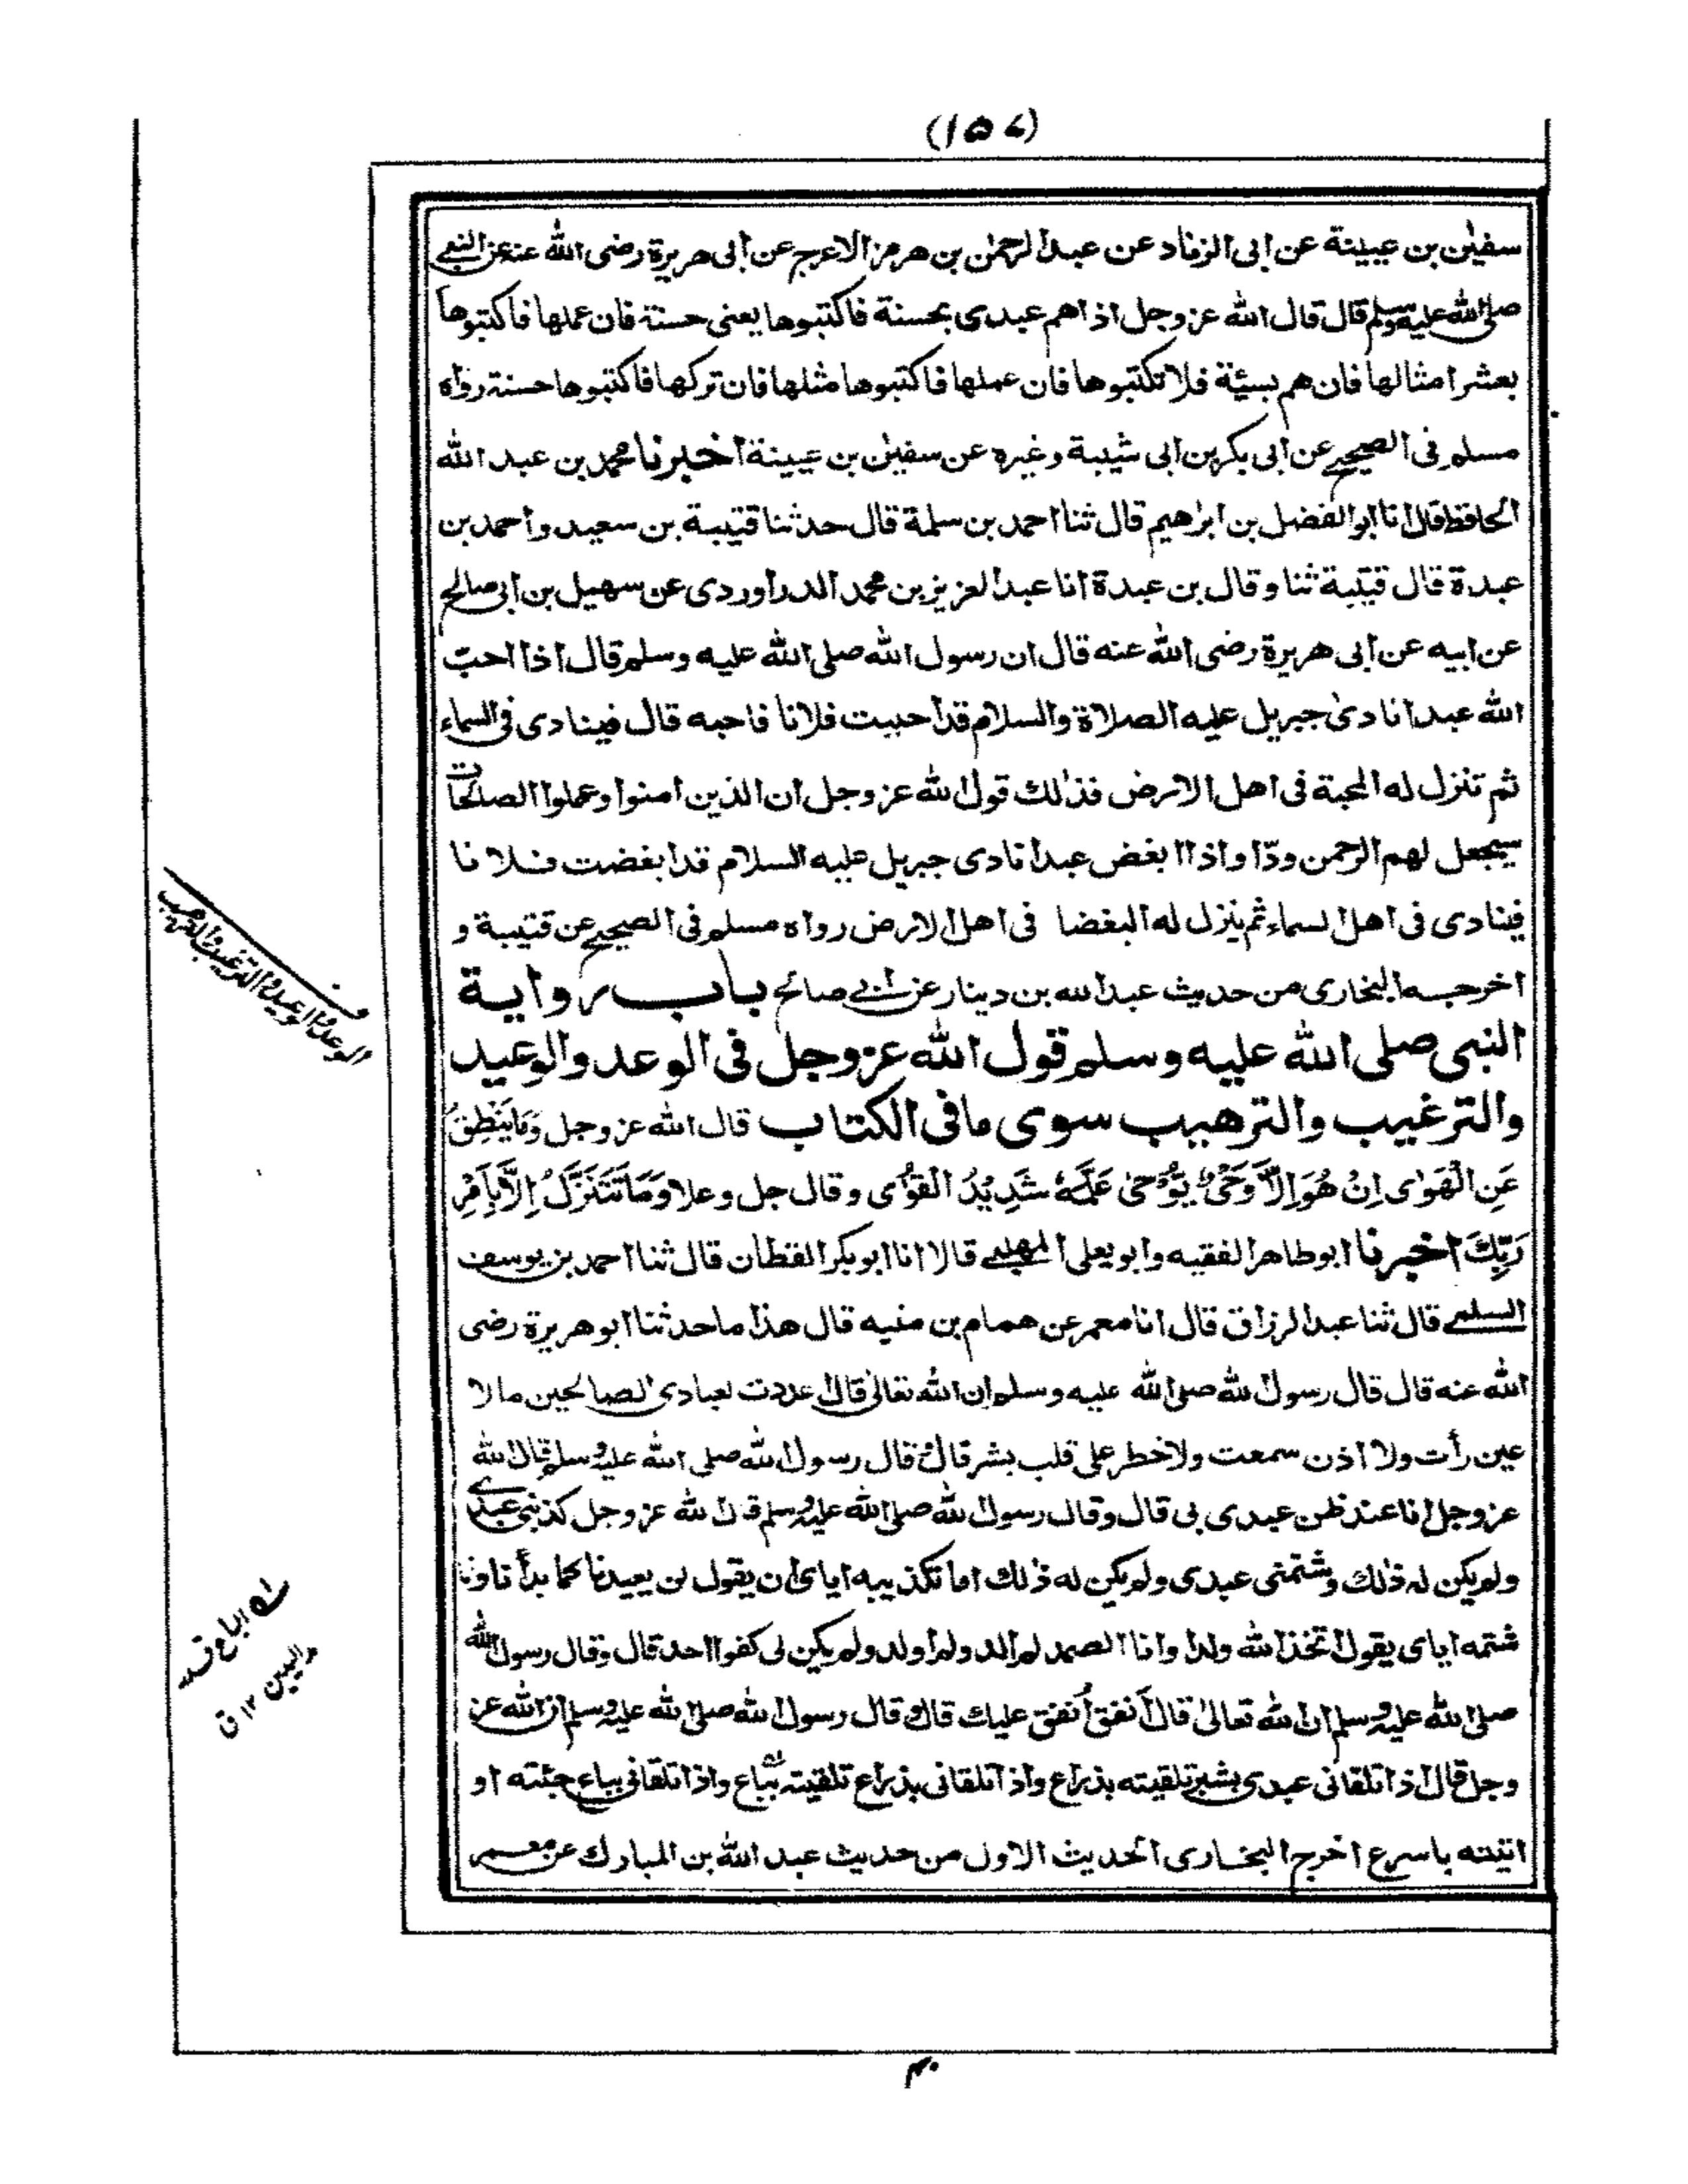 (١٥٧)
سفيٰن بن عيينة عن ابى الزناد عن عبد الرحمٰن بن هرمز الاعرج عن ابى هريرة رضى الله عنه عن النبى
صلى الله عليه وسلم قال قال الله عز وجل اذا هم عبدى بحسنة فاكتبوها يعنى حسنة فان عملها فاكتبوها
بعشر امثالها فان هم بسيئة فلا تكتبوها فان عملها فاكتبوها مثلها فان تركها فاكتبوها حسنة رواه
مسلم فى الصحيح عن ابى بكر بن ابى شيبة وغيره عن سفيٰن بن عيينة اخبرنا محمد بن عبد الله
الحافظ قال انا ابو الفضل بن ابرٰهيم قال ثنا احمد بن سلمة قال حدثنا قتيبة بن سعيد واحمد بن
عبدة قال قتيبة ثنا وقال بن عبدة انا عبد العزيز بن محمد الدراوردى عن سهيل بن ابى صالح
عن ابيه عن ابى هريرة رضى الله عنه قال ان رسول الله صلى الله عليه وسلم قال اذا احبّ
الله عبدا نادىٰ جبريل عليه الصلاة والسلام قد احببت فلانا فاحبه قال فينادى فى السماء
ثم تنزل له المحبة فى اهل الارض فذٰلك قول الله عز وجل ان الذين امنوا وعملوا الصلحات
سيجعل لهم الرحمن ودّا واذا ابغض عبدا نادى جبريل عليه السلام قد ابغضت فلانا
فينادى فى اهل السماء ثم ينزل له البغضا فى اهل الارض رواه مسلم فى الصحيح عن قتيبة و
اخرجه البخارى من حديث عبد الله بن دينار عن ابى صالح باب رواية
النبى صلى الله عليه وسلم قول الله عز وجل فى الوعد والوعيد
والترغيب والترهيب سوى ما فى الكتاب قال الله عز وجل وَمَا يَنْطِقُ
عَنِ الْهَوٰى اِنْ هُوَ اِلَّا وَحْىٌ يُّوْحىٰ عَلَّمَهٗ شَدِيْدُ الْقُوٰى وقال جل وعلا وَمَا نَتَنَزَّلُ اِلَّا بِاَمْرِ
رَبِّكَ اخبرنا ابو طاهر الفقيه وابو يعلى المهلبى قالا انا ابو بكر القطان قال ثنا احمد بن يوسف
السلمى قال ثنا عبد الرزاق قال انا معمر عن همام بن منبه قال هذا ما حدثنا ابو هريرة رضى
الله عنه قال قال رسول الله صلى الله عليه وسلم ان الله تعالىٰ قال اعددت لعبادى الصالحين ما لا
عين رأت ولا اذن سمعت ولا خطر على قلب بشر قال وقال رسول الله صلى الله عليه وسلم قال الله
عز وجل انا عند ظن عبدى بى قال وقال رسول الله صلى الله عليه وسلم قال الله عز وجل كذبنى عبدى
ولم يكن له ذٰلك وشتمنى عبدى ولم يكن له ذٰلك اما تكذيبه اياى ان يقول لن يعيدنا كما بدأنا واما
شتمه اياى يقول اتخذ الله ولدا وانا الصمد لم الد ولم اولد ولم يكن لى كفوا احد قال وقال رسول الله
صلى الله عليه وسلم ان الله تعالىٰ قال اَنفق اُنفق عليك قال وقال رسول الله صلى الله عليه وسلم ان الله عز
وجل قال اذا تلقانى عبدى بشبر تلقيته بذراع واذا تلقانى بذراع تلقيته بباع واذا تلقانى بباع جئته او
اتيته باسرع اخرج البخارى الحديث الاول من حديث عبد الله بن المبارك عن معمر
الوعد والوعيد والترغيب والترهيب
الباع قد
اليدين ١٢ ق
٤٠